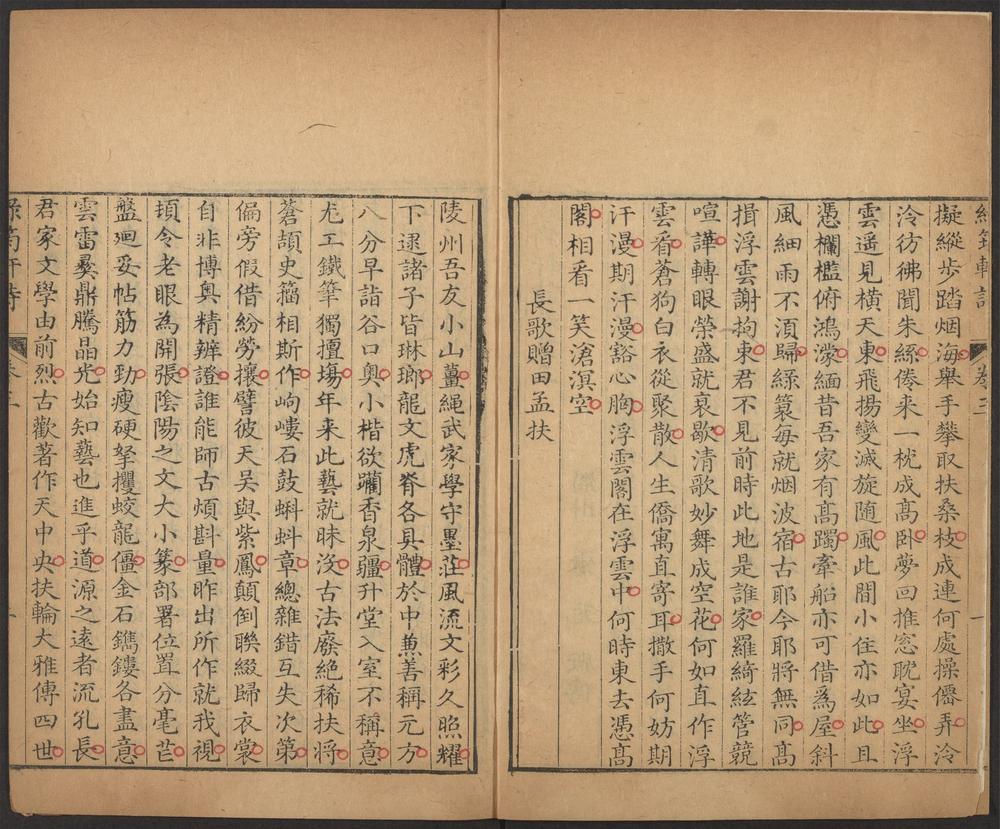 擬縱步踏烟海舉手攀取扶桑枝成連何處操僊弄泠
泠彷彿聞朱絲倦来一枕成髙卧夢回推窓眈宴坐浮
雲遥見横天東飛揚變滅旋随風此間小住亦如此且
憑欄檻俯鴻濛緬昔吾家有髙躅牽船亦可借爲屋斜
風細雨不湏歸緑簑每就烟波宿古耶今耶將無同髙
揖浮雲謝拘束君不見前時此地是誰家羅綺絃管競
喧譁轉眼榮盛就衰歇清歌妙舞成空花何如直作浮
雲看蒼狗白衣從聚散人生僑寓直寄耳撒手何妨期
汗漫期汗漫豁心胸浮雲閣在浮雲中何時東去憑髙
閣相看一笑滄溟空
長歌贈田孟扶
陵州吾友小山薑繩武家學守墨莊風流文彩久照耀
下逮諸子皆琳瑯龍文虎脊各具體於中兼善稱元方
八分早詣谷口奥小楷欲躪香泉疆升堂入室不稱意
尤工鐵筆獨擅塲年来此藝就昧没古法廢絶稀扶將
蒼頡史籀相斯作岣嶁石鼓蝌蚪章總雜錯互失次第
偏旁假借紛勞攘譬彼天吴與紫鳳顛倒聯綴歸衣裳
自非博奥精辨證誰能師古煩斟量昨出所作就我視
頃令老眼為開張陰陽之文大小篆部署位置分毫芒
盤廻妥帖筋力勁瘦硬拏攫蛟龍僵金石鐫鏤各盡意
雲雷彝鼎騰晶光始知藝也進乎道源之遠者流孔長
君家文學由前烈古歡著作天中央扶輪大雅傳四世